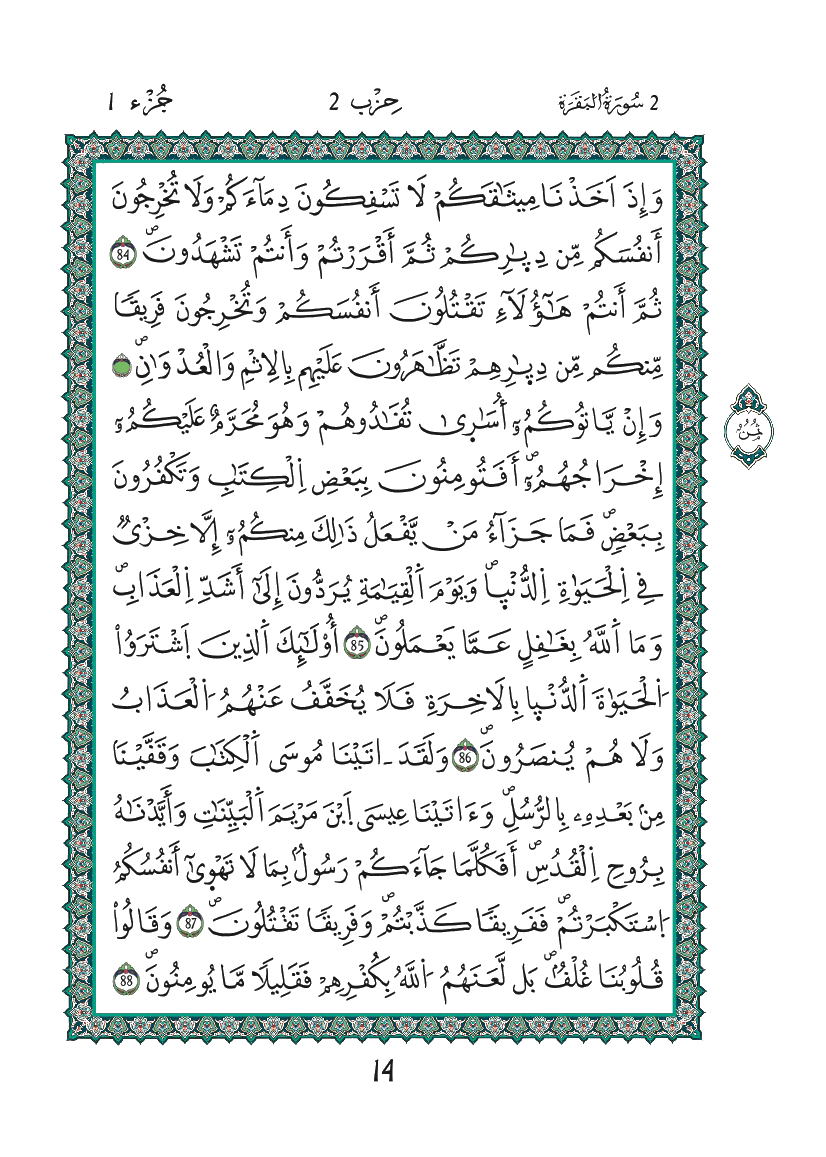 2 سُورَةُ الْبَقَرَة حِزْب 2 جُزْء 1
وَإِذَ اَخَذْنَا مِيثَٰقَكُمْ لَا تَسْفِكُونَ دِمَآءَكُمْ وَلَا تُخْرِجُونَ
أَنفُسَكُم مِّن دِيٰ۪رِكُمْ ثُمَّ أَقْرَرْتُمْ وَأَنتُمْ تَشْهَدُونَۖ 84
ثُمَّ أَنتُمْ هَٰٓؤُلَآءِ تَقْتُلُونَ أَنفُسَكُمْ وَتُخْرِجُونَ فَرِيقاٗ
مِّنكُم مِّن دِيٰ۪رِهِمْ تَظَّٰهَرُونَ عَلَيْهِم بِالِاثْمِ وَالْعُدْوَٰنِۖ
وَإِنْ يَّاتُوكُمُۥٓ أُسَٰر۪ىٰ تُفَٰدُوهُمْ وَهُوَ مُحَرَّمٌ عَلَيْكُمُۥٓ
إِخْرَاجُهُمُۥٓۖ أَفَتُومِنُونَ بِبَعْضِ اِ۬لْكِتَٰبِ وَتَكْفُرُونَ
بِبَعْضٖۖ فَمَا جَزَآءُ مَنْ يَّفْعَلُ ذَٰلِكَ مِنكُمُۥٓ إِلَّا خِزْيٞ
فِے اِ۬لْحَيَوٰةِ اِ۬لدُّنْي۪اۖ وَيَوْمَ اَ۬لْقِيَٰمَةِ يُرَدُّونَ إِلَىٰٓ أَشَدِّ اِ۬لْعَذَابِۖ
وَمَا اَ۬للَّهُ بِغَٰفِلٍ عَمَّا يَعْمَلُونَۖ 85 أُوْلَٰٓئِكَ اَ۬لذِينَ اَ۪شْتَرَوُاْ
اُ۬لْحَيَوٰةَ اَ۬لدُّنْي۪ا بِالَاخِرَةِ فَلَا يُخَفَّفُ عَنْهُمُ اُ۬لْعَذَابُ
وَلَا هُمْ يُنصَرُونَۖ 86 وَلَقَدَ اٰتَيْنَا مُوسَى اَ۬لْكِتَٰبَ وَقَفَّيْنَا
مِنۢ بَعْدِهِۦ بِالرُّسُلِۖ وَءَاتَيْنَا عِيسَى اَ۪بْنَ مَرْيَمَ اَ۬لْبَيِّنَٰتِ وَأَيَّدْنَٰهُ
بِرُوحِ اِ۬لْقُدُسِۖ أَفَكُلَّمَا جَآءَكُمْ رَسُولُۢ بِمَا لَا تَهْو۪ىٰٓ أَنفُسُكُمُ
اُ۪سْتَكْبَرْتُمْۖ فَفَرِيقاٗ كَذَّبْتُمْۖ وَفَرِيقاٗ تَقْتُلُونَۖ 87 وَقَالُواْ
قُلُوبُنَا غُلْفُۢۖ بَل لَّعَنَهُمُ اُ۬للَّهُ بِكُفْرِهِمْ فَقَلِيلاٗ مَّا يُومِنُونَۖ 88
ثُمُن
14